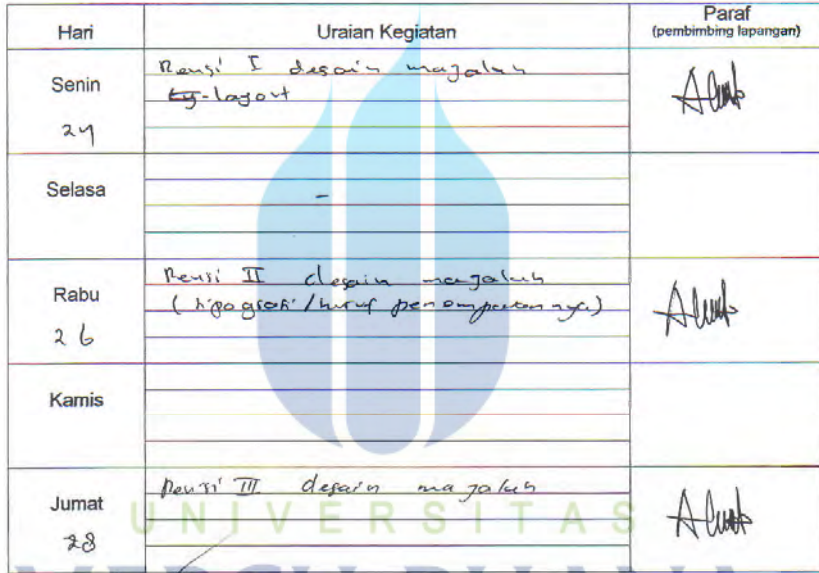 Hari Uraian Kegiatan Paraf
(pembimbing lapangan)
Senin
24
Revisi I desain majalah
layout
Selasa
-
Rabu
26
Revisi II desain majalah
(tipografi/huruf penempatannya)
Kamis
Jumat
28
Revisi III desain majalah
UNIVERSITAS